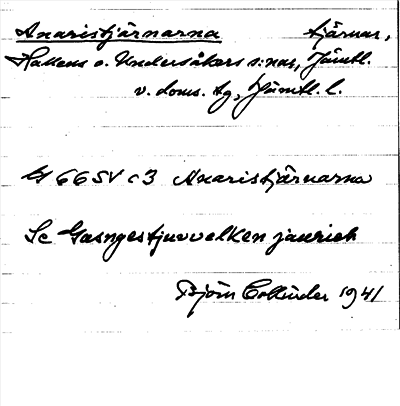 Anaristjärnarna tjärnar,
Hallens o. Undersåkers s:nar, Jämtl.
v. doms. tg, Jämtl. l.
G 66 SV c 3 Anaristjärnarna
Se Gasngestjuvvelken jaurieh
Björn Collinder 1941